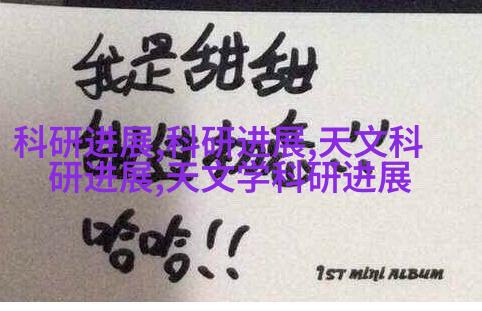 我是甜甜
科研进展,科研进展,天文科
研进展,天文学科研进展
哈哈!!
1ST MINI ALBUM